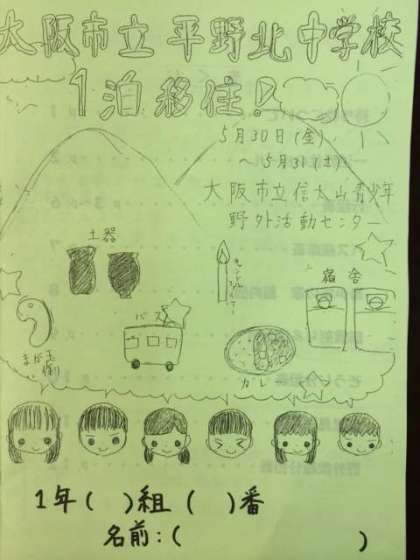 大阪市立 平野北中学校
1泊移住!
5月30日(金)
~5月31(土)
大阪市立信太山青少年
野外活動センター
土器
キャンドル
宿舎
バス
まが玉
カレー
1年( )組( )番
名前:( )